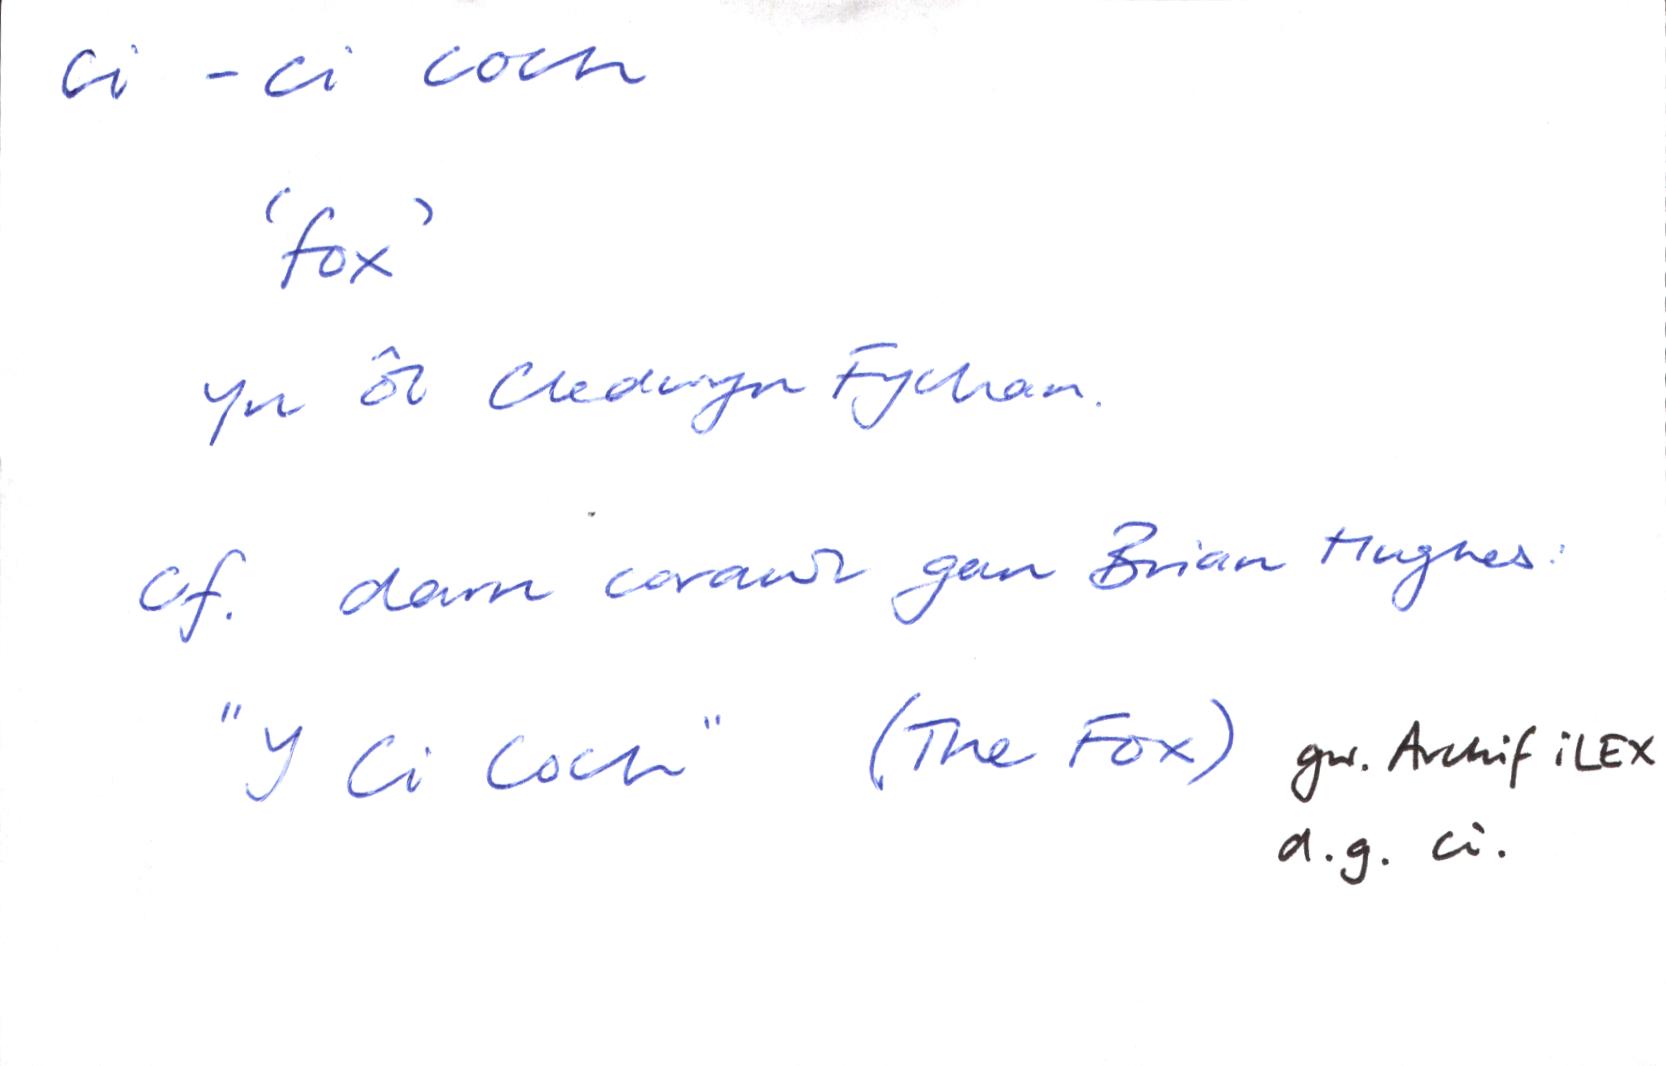 ci - ci coch
'fox'
yn ôl Cledwyn Fychan.
Cf. darn corawl gan Brian Hughes:
"Y Ci Coch" (The Fox) gw. Archif iLEX
d.g. ci.